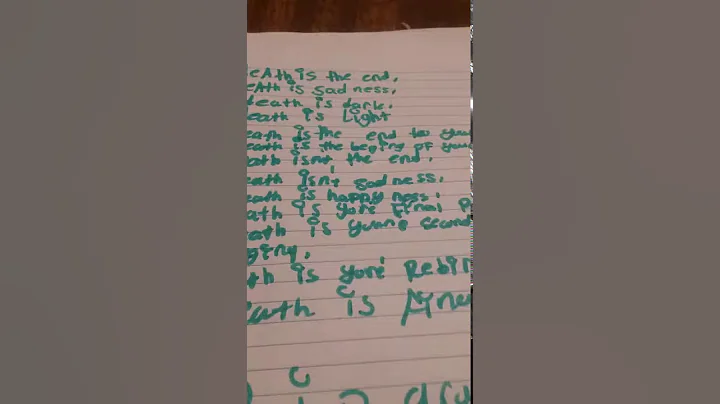 eAth is the end,
eAth is sadness,
death is dark.
eath is Light
eath is the end to you
eath is the begining of you
ath isnt the end.
eath isn't sadness.
eath is happyness.
ath is yore Final P
ath is yours second
ginny.
th is yore Rebir
eath is